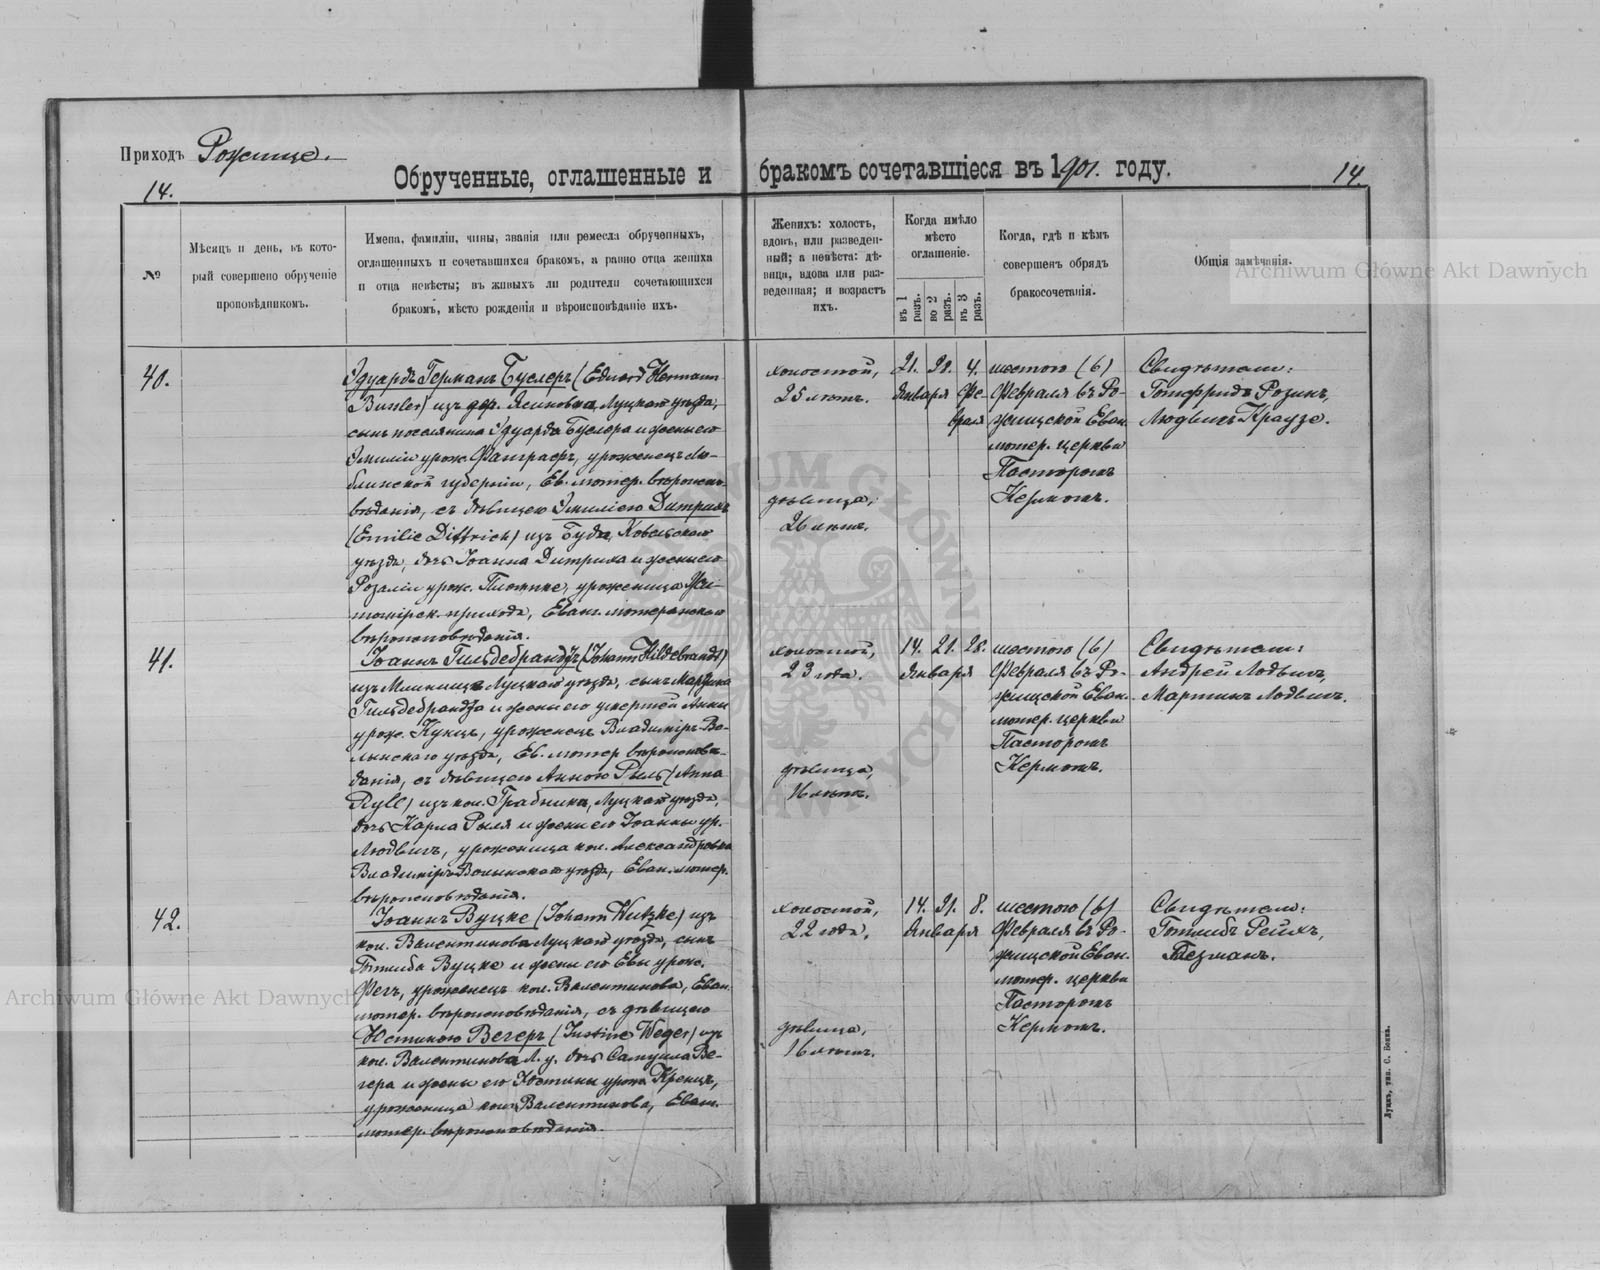 Приходъ Рожище.
14.
Обрученные, оглашенные и бракомъ сочетавшіеся въ 1901. году.
14.
№
Мѣсяцъ и день, въ который совершено обрученіе проповѣдникомъ.
Имена, фамиліи, чины, званія или ремесла обрученныхъ,
оглашенныхъ и сочетавшихся бракомъ, а равно отца жениха
и отца невѣсты; въ живыхъ ли родители сочетающихся
бракомъ, мѣсто рожденія и вѣроисповѣданіе ихъ.
Женихъ: холостъ,
вдовъ, или разведен-
ный; а невѣста: дѣ-
вица, вдова или раз-
веденная; и возрастъ
ихъ.
Когда имѣло
мѣсто
оглашеніе.
въ 1 разъ.
во 2 разъ.
въ 3 разъ.
Когда, гдѣ и кѣмъ
совершенъ обрядъ
бракосочетанія.
Общія замѣчанія.
40.
Эдуардъ Германъ Буслеръ (Eduard Hermann
Bussler) изъ дер. Ясиновка, Луцкаго уѣзда,
сынъ поселянина Эдуарда Буслера и жены его
Эмиліи урож. Фанграеръ, уроженецъ Лю-
блинской губерніи, Ев. лютер. вѣроиспо-
вѣданія, съ дѣвицею Эмиліею Дитрихъ
(Emilie Dittrich) изъ Буда, Ковельскаго
уѣзда, дочь Іоанна Дитриха и жены его
Розаліи урож. Плотнке, уроженица Жи-
томірск. прихода, Еванг. лютеранскаго
вѣроисповѣданія.
холостой,
25 лѣтъ.
дѣвица,
26 лѣтъ.
21. 28. 4.
Января Фе-
враля
шестого (6)
Февраля въ Ро-
жищской Еван.
лютер. церкви
Пасторомъ
Кермомъ.
Свидѣтели:
Готфридъ Розинъ,
Людвигъ Краузе.
41.
Іоаннъ Гильдебрандтъ (Johann Hildebrandt)
изъ Луцкаго уѣзда, сынъ Мартина
Гильдебрандта и жены его умершей Анны
урож. Кунцъ, уроженецъ Владиміръ-Во-
лынскаго уѣзда, Ев. лютер. вѣроисповѣ-
данія, съ дѣвицею Анною Рыль (Anna
Ryll) изъ кол. Грабники, Луцкаго уѣзда,
дочь Карла Рыля и жены его Іоанны ур.
Людвигъ, уроженица кол. Александровка
Владиміръ-Волынскаго уѣзда, Еван. лютер.
вѣроисповѣданія.
холостой,
23 года.
дѣвица,
16 лѣтъ.
14. 21. 28.
Января
шестого (6)
Февраля въ Ро-
жищской Еван.
лютер. церкви
Пасторомъ
Кермомъ.
Свидѣтели:
Андрей Людвигъ,
Мартинъ Людвигъ.
42.
Іоаннъ Вуцке (Johann Wutzke) изъ
кол. Валентинова Луцкаго уѣзда, сынъ
Готлиба Вуцке и жены его Евы урож.
Фегъ, уроженецъ кол. Валентинова, Еван.
лютер. вѣроисповѣданія, съ дѣвицею
Юстиною Вегеръ (Justine Weger) изъ
кол. Валентинова Л. у. дочь Самуила Ве-
гера и жены его Юстины урож. Кренцъ,
уроженица кол. Валентинова, Еван.
лютер. вѣроисповѣданія.
холостой,
22 года.
дѣвица,
16 лѣтъ.
14. 21. 8.
Января
шестого (6)
Февраля въ Ро-
жищской Еван.
лютер. церкви
Пасторомъ
Кермомъ.
Свидѣтели:
Готлибъ Рейхъ,
Тезманъ.
Луцкъ, тип. С. Бокъ.
Archiwum Główne Akt Dawnych
Archiwum Główne Akt Dawnych